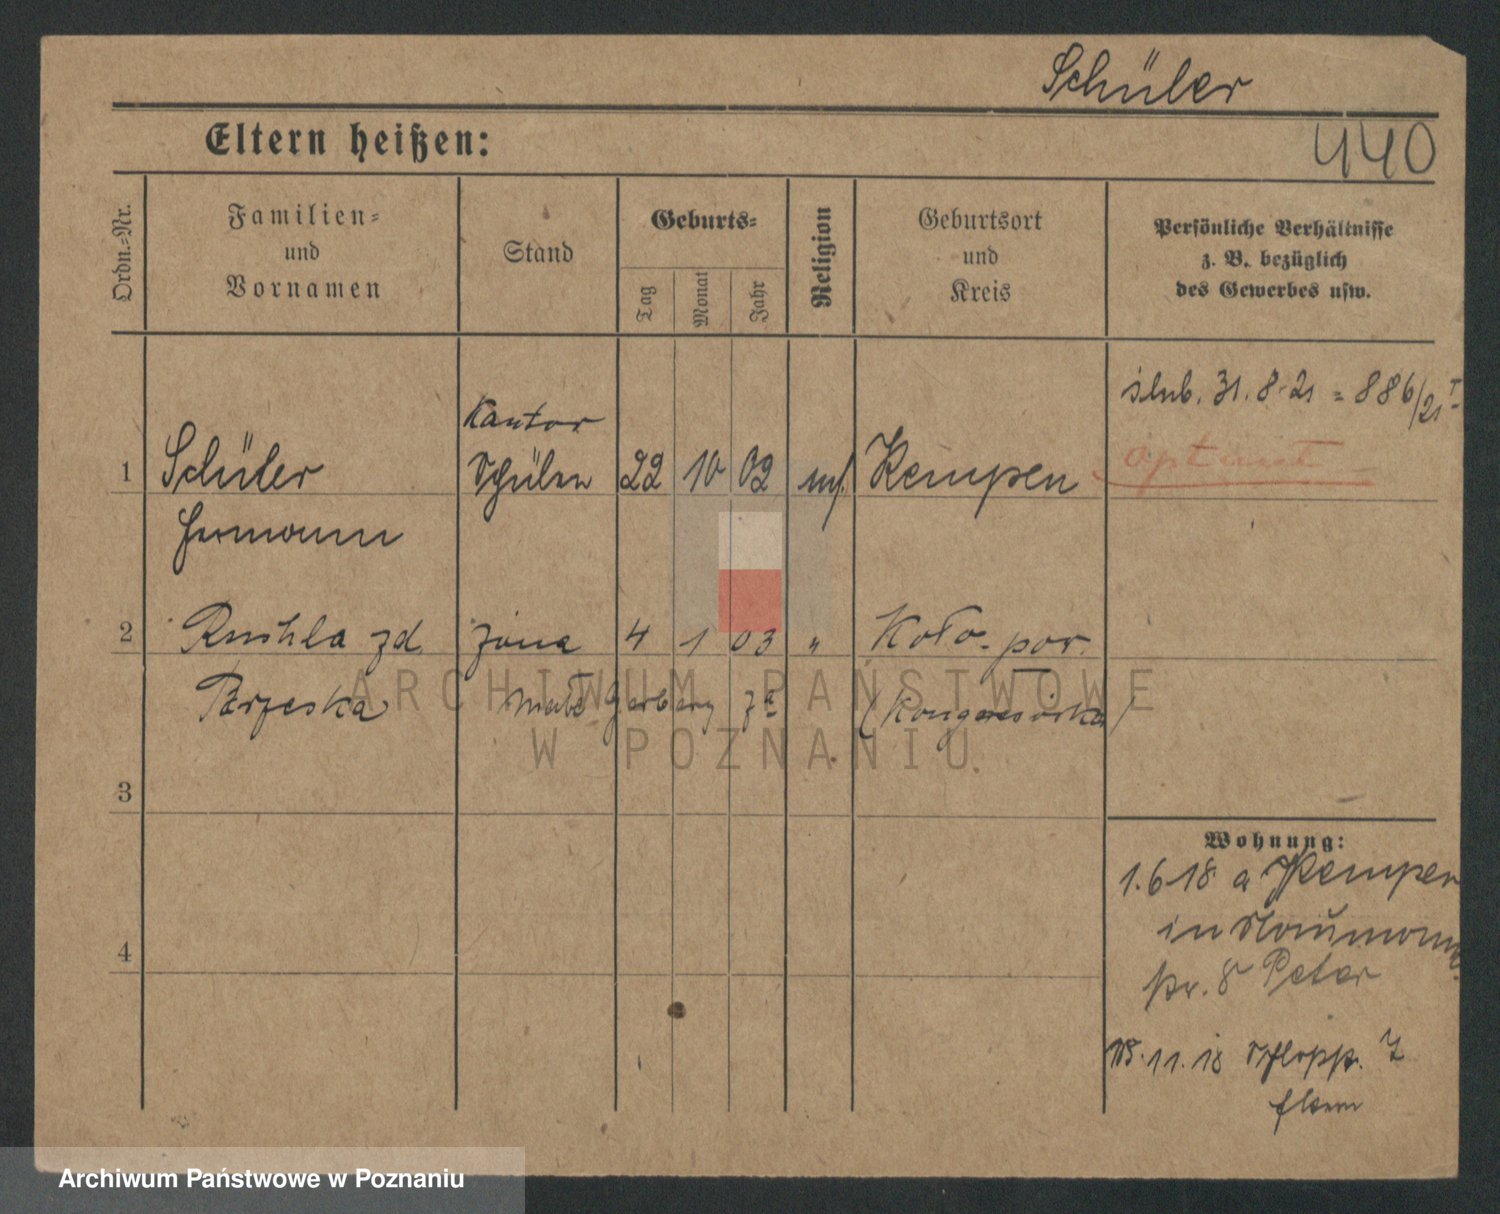 Schüler
Eltern heißen:
440
Ordn.-Nr.
Familien-
und
Vornamen
Stand
Geburts-
Tag
Monat
Jahr
Religion
Geburtsort
und
Kreis
Persönliche Verhältnisse
z. B. bezüglich
des Gewerbes usw.
ślub. 31. 8. 21 = 886/21
1
Schüler
Kantor
Schüler
22
10
02
Kempen
Hermann
2
zd
żona
4
1
03
"
Koło - por.
Brzeska
(Kongresówka)
ARCHIWUM PAŃSTWOWE
W POZNANIU
3
Wohnung:
1.6 18 a Kempen
in Naumann
str. 8 Peter
4
11. 18
Eltern
Archiwum Państwowe w Poznaniu